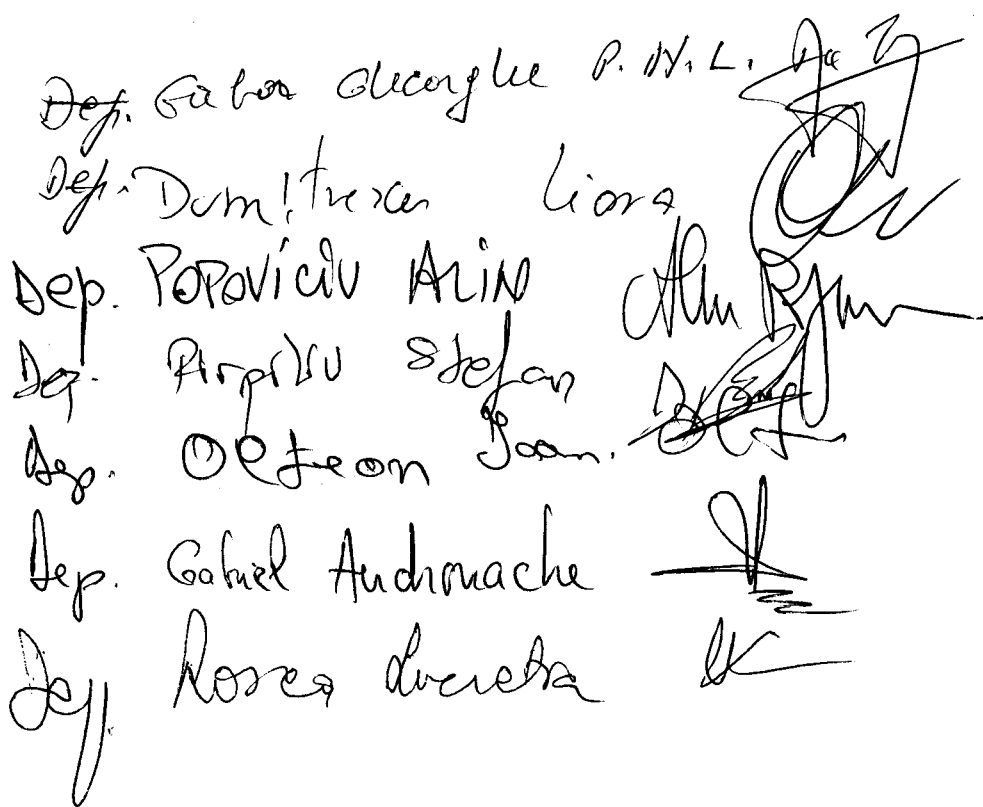 Dep. Gabor Gheorghe P.N.L.
Dep. Dumitrescu Liana
Dep. POPOVICIU ALIN
Dep. Pirpiliu Stefan
Dep. Oltean Ioan.
Dep. Gabriel Andronache
Dep. Rosca Lucretia